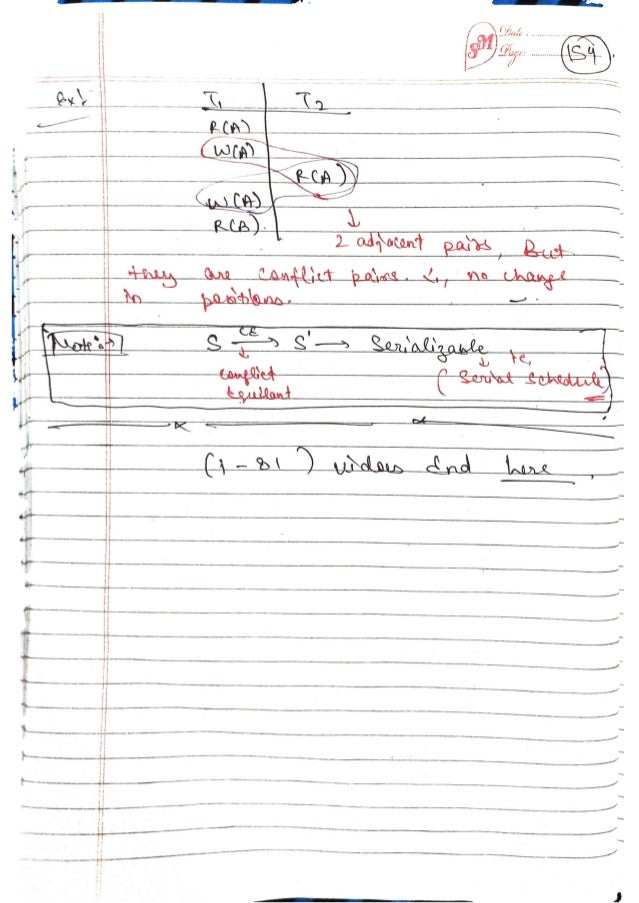 SM Date
Page: 154
Ex:
T1 T2
R(A)
W(A)
R(A)
W(A)
R(B)
↓
2 adjacent pairs, But
they are conflict pairs. no change
in positions.
Note:→ S CE→ S' → Serializable
↓ ↓ ie,
conflict (Serial Schedule)
Equilant
(1-81) videos End here.